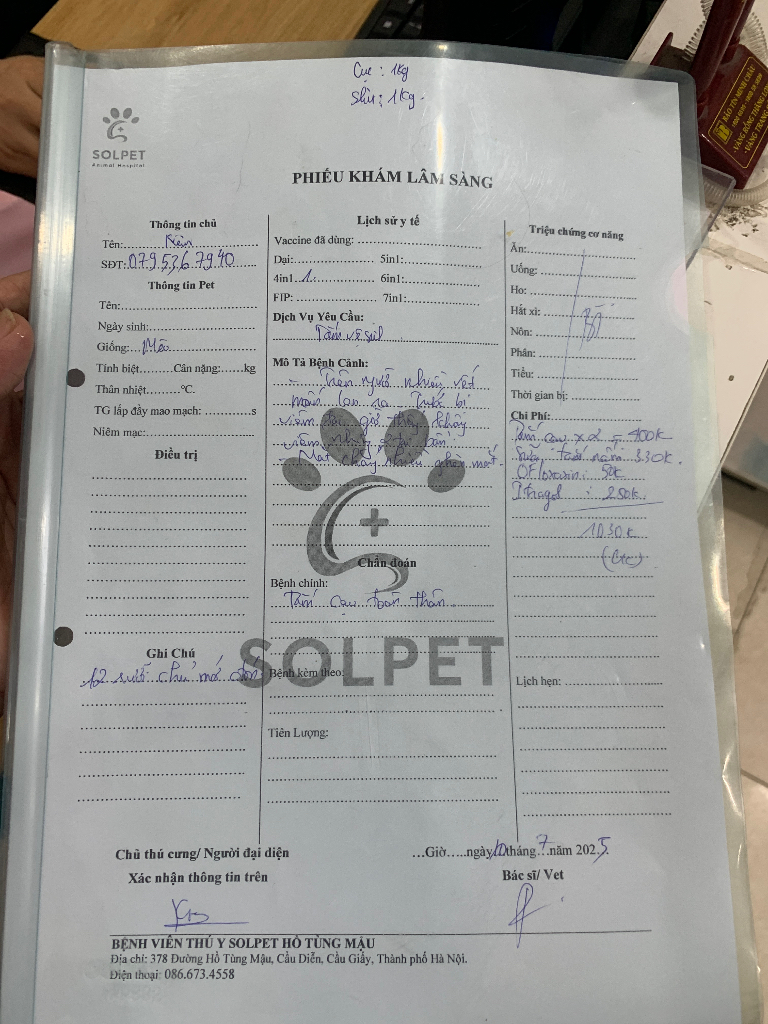 Cục : 1kg
Slu : 1kg.
SOLPET
Animal Hospital
BẢO TÍN MINH CHÂU
PHIẾU KHÁM LÂM SÀNG
Thông tin chủ
Tên: Kiên
SĐT: 079.536.79.40
Thông tin Pet
Tên:
Ngày sinh:
Giống: Mèo
Tính biệt Cân nặng: kg
Thân nhiệt °C.
TG lấp đầy mao mạch: s
Niêm mạc:
Điều trị
Ghi Chú
12 chủ mới đón
Lịch sử y tế
Vaccine đã dùng:
Dại: 5in1:
4in1: 1 6in1:
FIP: 7in1:
Dịch Vụ Yêu Cầu:
Tắm vệ sinh
Mô Tả Bệnh Cảnh:
- Trên người nhiều vết
mẩn cạo ra. Trước bị
viêm tai giờ thấy không
viêm nhưng bẩn
- Mắt chảy nhiều ghèn mắt
Chẩn đoán
Bệnh chính:
Tắm cạo toàn thân
SOLPET
Bệnh kèm theo:
Tiên Lượng:
Triệu chứng cơ năng
Ăn:
Uống:
Ho:
Hắt xì:
Nôn:
Phân:
Tiểu:
Thời gian bị:
Chi Phí:
Tắm cạo x 2 = 400k
Sữa tắm nấm 330k.
Ofloxacin: 50k
Itragol : 250k.
1030k
Lịch hẹn:
Chủ thú cưng/ Người đại diện
Xác nhận thông tin trên
…Giờ…..ngày 10 tháng 7 năm 2025
Bác sĩ/ Vet
BỆNH VIỆN THÚ Y SOLPET HỒ TÙNG MẬU
Địa chỉ: 378 Đường Hồ Tùng Mậu, Cầu Diễn, Cầu Giấy, Thành phố Hà Nội.
Điện thoại: 086.673.4558